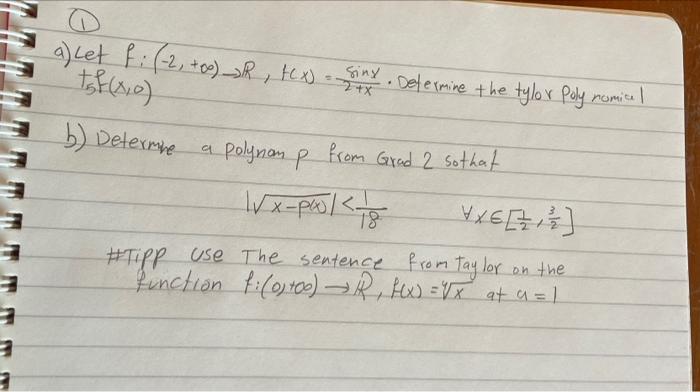 ①
a) Let f: (-2, +∞) → R, f(x) = sinx/2+x . Determine the tylor Poly nomial
t5f(x,0)
b) Determine a polynom p from Grad 2 so that
|√x-p(x)| < 1/18 ∀x∈[1/2, 3/2]
#Tipp use The sentence from Taylor on the
function f:(0,+∞) → R, f(x) = √x at a = 1